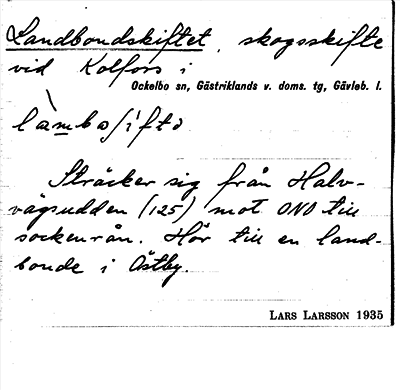 Landbondskiftet, skogsskifte
vid Kolfors i
Ockelbo sn, Gästriklands v. doms. tg, Gävleb. l.
Sträcker sig från Halv-
vägsudden (125) mot ONO till
sockenrån. Hör till en land-
bonde i Östby.
LARS LARSSON 1935